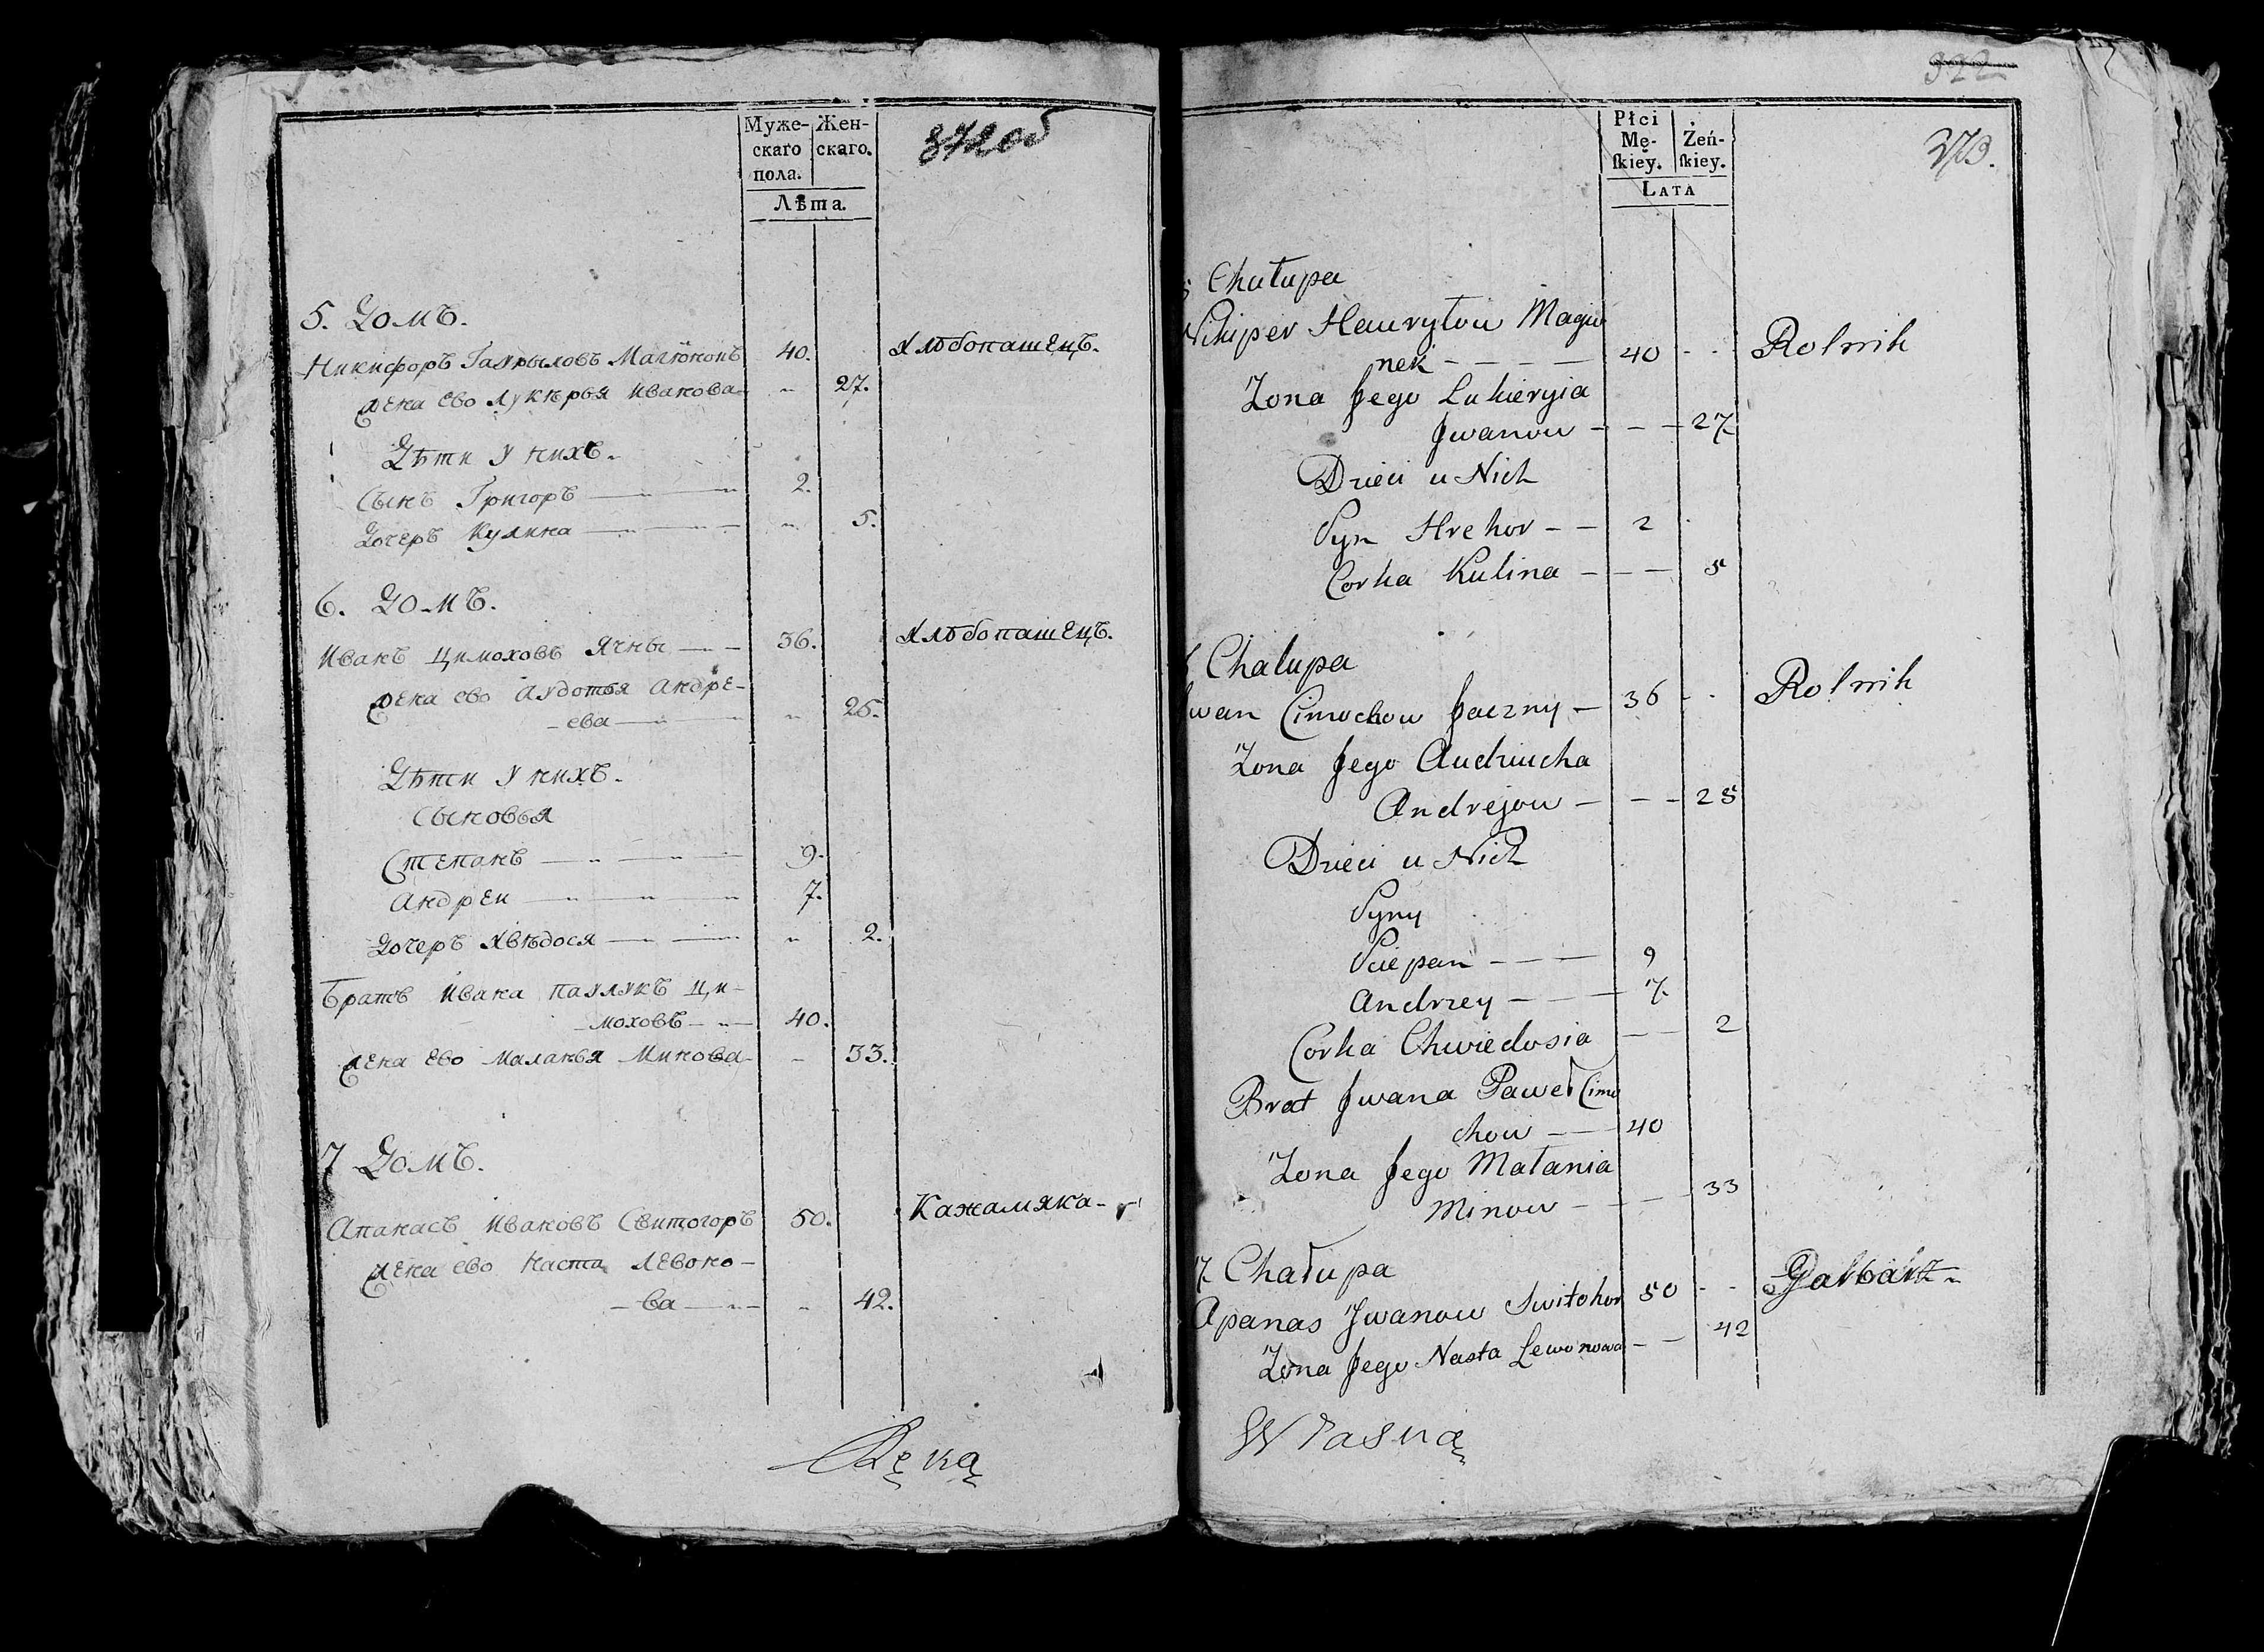 Муже- Жен-
скаго скаго.
пола.
Лѣта.
372об
5. Домъ.
Никифоръ Гаурыловъ Магюнонъ 40. Хлѣбопашецъ.
жена ево Лукерья Иванова „ 27.
Дѣти у нихъ.
Сынъ Григоръ 2.
Дочеръ Кулина „ 5.
6. Домъ.
Иванъ Цимоховъ Ячны 36. Хлѣбопашецъ.
жена ево Аудотья Андре-
ева „ 25.
Дѣти у нихъ.
Сыновья
Степанъ 9.
Андреи 7.
Дочеръ Хвѣдося „ 2.
Братъ Ивана Паулукъ Ци-
моховъ 40.
жена ево Маланья Минова 33.
7 Домъ.
Апанасъ Ивановъ Свитогоръ 50. Кажамяка
жена ево Наста Левоно-
ва „ 42.
Ręką
322
373.
Płci
Mę- Żeń-
ſkiey. ſkiey.
Lata
Chałupa
Nikiper Hauryłow Magiu
nek 40 Rolnik
Zona Jego Lukieryia
Jwanow 27
Dzieci u Nich
Syn Hrehor 2
Corka Kulina 5
Chałupa
Jwan Cimochow Jaczny 36 Rolnik
Zona Jego Audziucha
Andrejow 25
Dzieci u Nich
Syny
Sciepan 9
Andrzey 7
Corka Chwiedosia 2
Brat Jwana Paweł Cimo
chow 40
Zona Jego Małania
Minow 33
7. Chałupa
Apanas Jwanow Switohor 50 Garbarz
Zona Jego Nasta Lewonowa 42
Własną